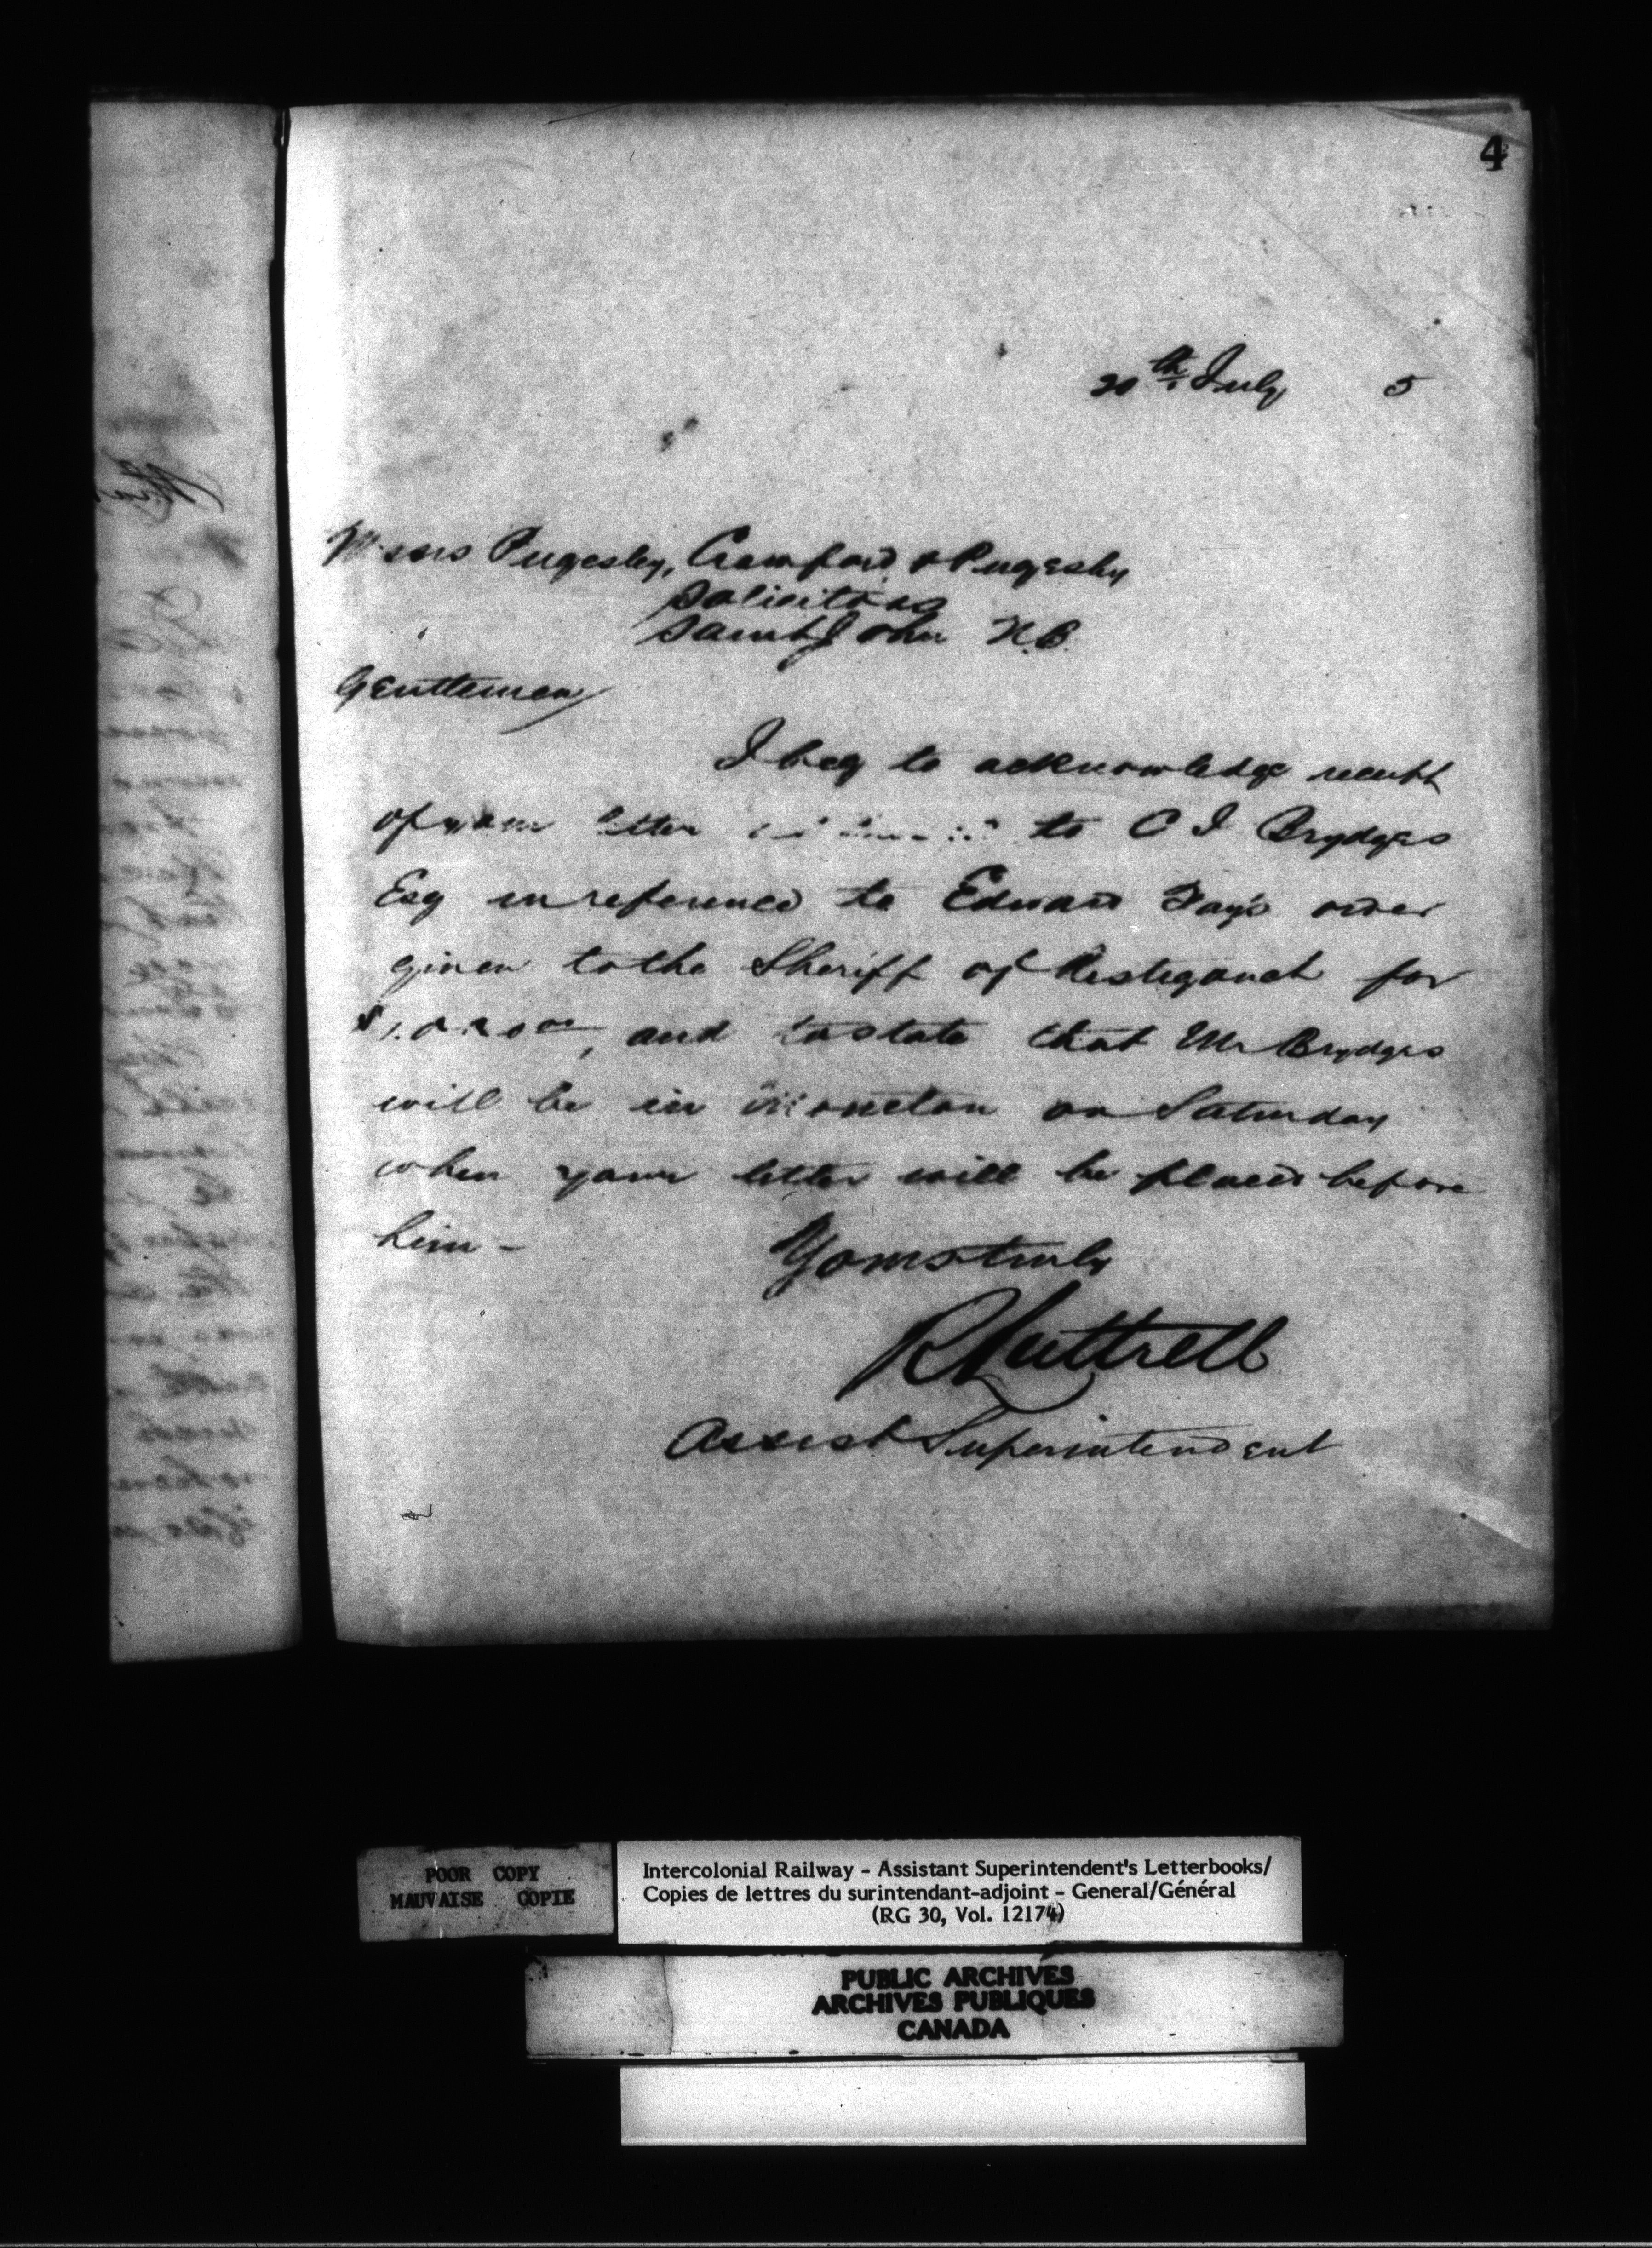 4
20th July 5
Messrs Pugesley, Crawford & Pugesley
Solicitors
Saint John N.B.
Gentlemen
I beg to acknowledge receipt
of your letter to C J Brydges
Esq in reference to Edward Fay's order
given to the Sheriff of Restigouch for
and to state that Mr Brydges
will be in Moncton on Saturday
when your letter will be placed before
him -
Yours truly
R Luttrell
Assist Superintendent
POOR COPY
MAUVAISE COPIE
Intercolonial Railway - Assistant Superintendent's Letterbooks/
Copies de lettres du surintendant-adjoint - General/Général
(RG 30, Vol. 12174)
PUBLIC ARCHIVES
ARCHIVES PUBLIQUES
CANADA